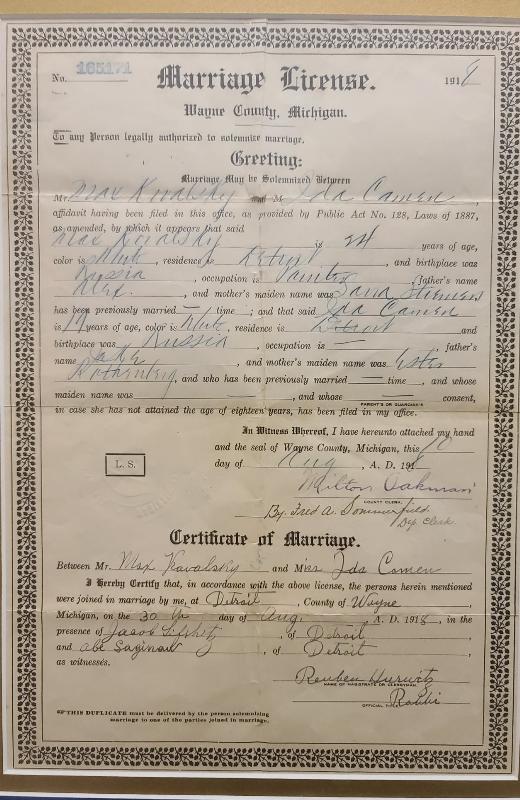 No. 165171 Marriage License. 1918
Wayne County, Michigan.
To any Person legally authorized to solemnize marriage.
Greeting:
Marriage May be Solemnized Between
Mr. Max Kovalsky and M Ida Camen,
affidavit having been filed in this office, as provided by Public Act No. 128, Laws of 1887,
as amended, by which it appears that said
Max Kovalsky is 24 years of age,
color is White, residence is Detroit, and birthplace was
Russia, occupation is Painter, father's name
Alex, and mother's maiden name was Sara
has been previously married — time; and that said Ida Camen
is 19 years of age, color is White, residence is Detroit and
birthplace was Russia, occupation is —, father's
name Jake, and mother's maiden name was Ester
Rothenberg, and who has been previously married — time, and whose
maiden name was , and whose consent,
PARENT'S OR GUARDIAN'S
in case she has not attained the age of eighteen years, has been filed in my office.
In Witness Whereof, I have hereunto attached my hand
and the seal of Wayne County, Michigan, this
L. S.
day of Aug, A. D. 1918
Milton Oakman
COUNTY CLERK.
By Fred A. Sommerfield
Dep Clerk
Certificate of Marriage.
Between Mr. Max Kovalsky and Miss Ida Camen
I Hereby Certify that, in accordance with the above license, the persons herein mentioned
were joined in marriage by me, at Detroit, County of Wayne,
Michigan, on the 30th day of Aug., A. D. 1918, in the
presence of Jacob Lifshitz, of Detroit
and Abe Saginaw, of Detroit,
as witnesses.
Reuben Hurwitz
NAME OF MAGISTRATE OR CLERGYMAN.
Rabbi
OFFICIAL TITLE
☞THIS DUPLICATE must be delivered by the person solemnizing
marriage to one of the parties joined in marriage.